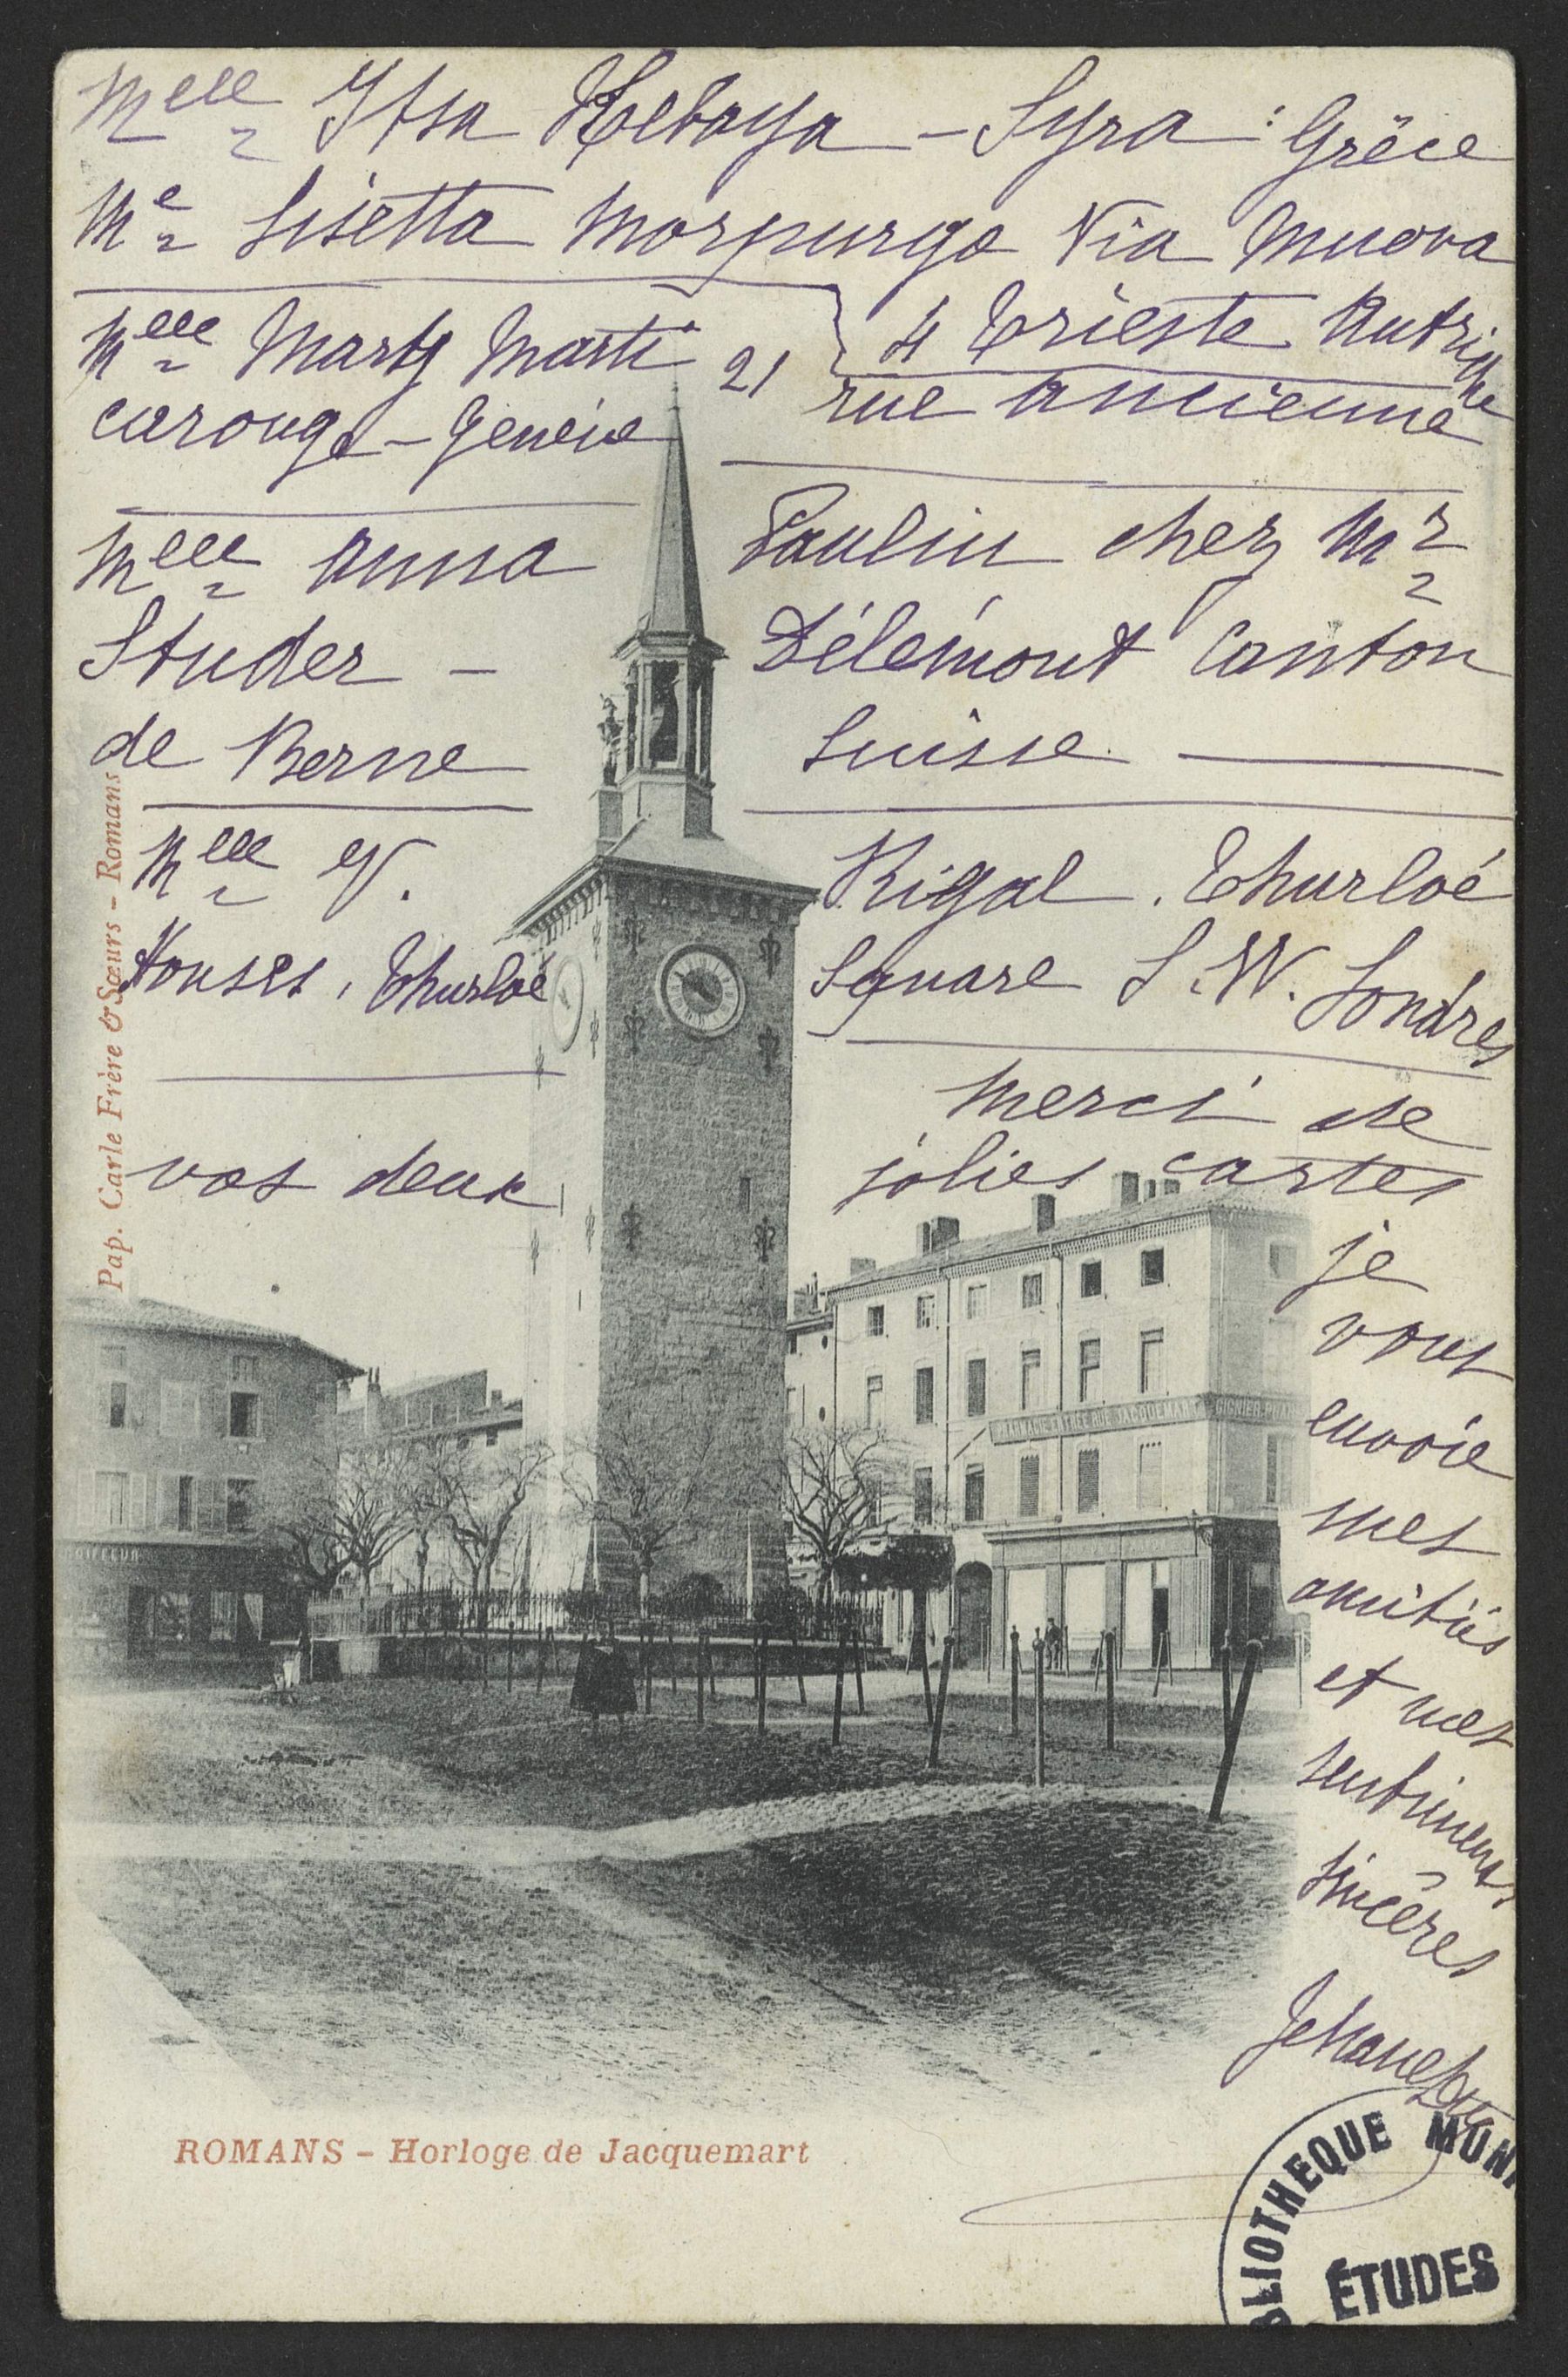 Melle Itsa Hebaya – Syra : Grèce
Me Lisetta Morpurgo Via Nuova
4 Trieste Autriche
Melle Marty Marti 21 rue ancienne
carouge – Genève
Melle Anna Paulin chez Mr
Studer – Délémont Canton
de Berne Suisse
Melle V. Rigal. Thurloé
Houses, Thurloé Square S.W. Londres
Merci de
vos deux jolies cartes
je
vous
envoie
mes
amitiés
et mes
sentiments
sincères
Pap. Carle Frère & Sœurs – Romans
COIFFEUR
ROMANS – Horloge de Jacquemart
BLIOTHEQUE MUNI
ÉTUDES